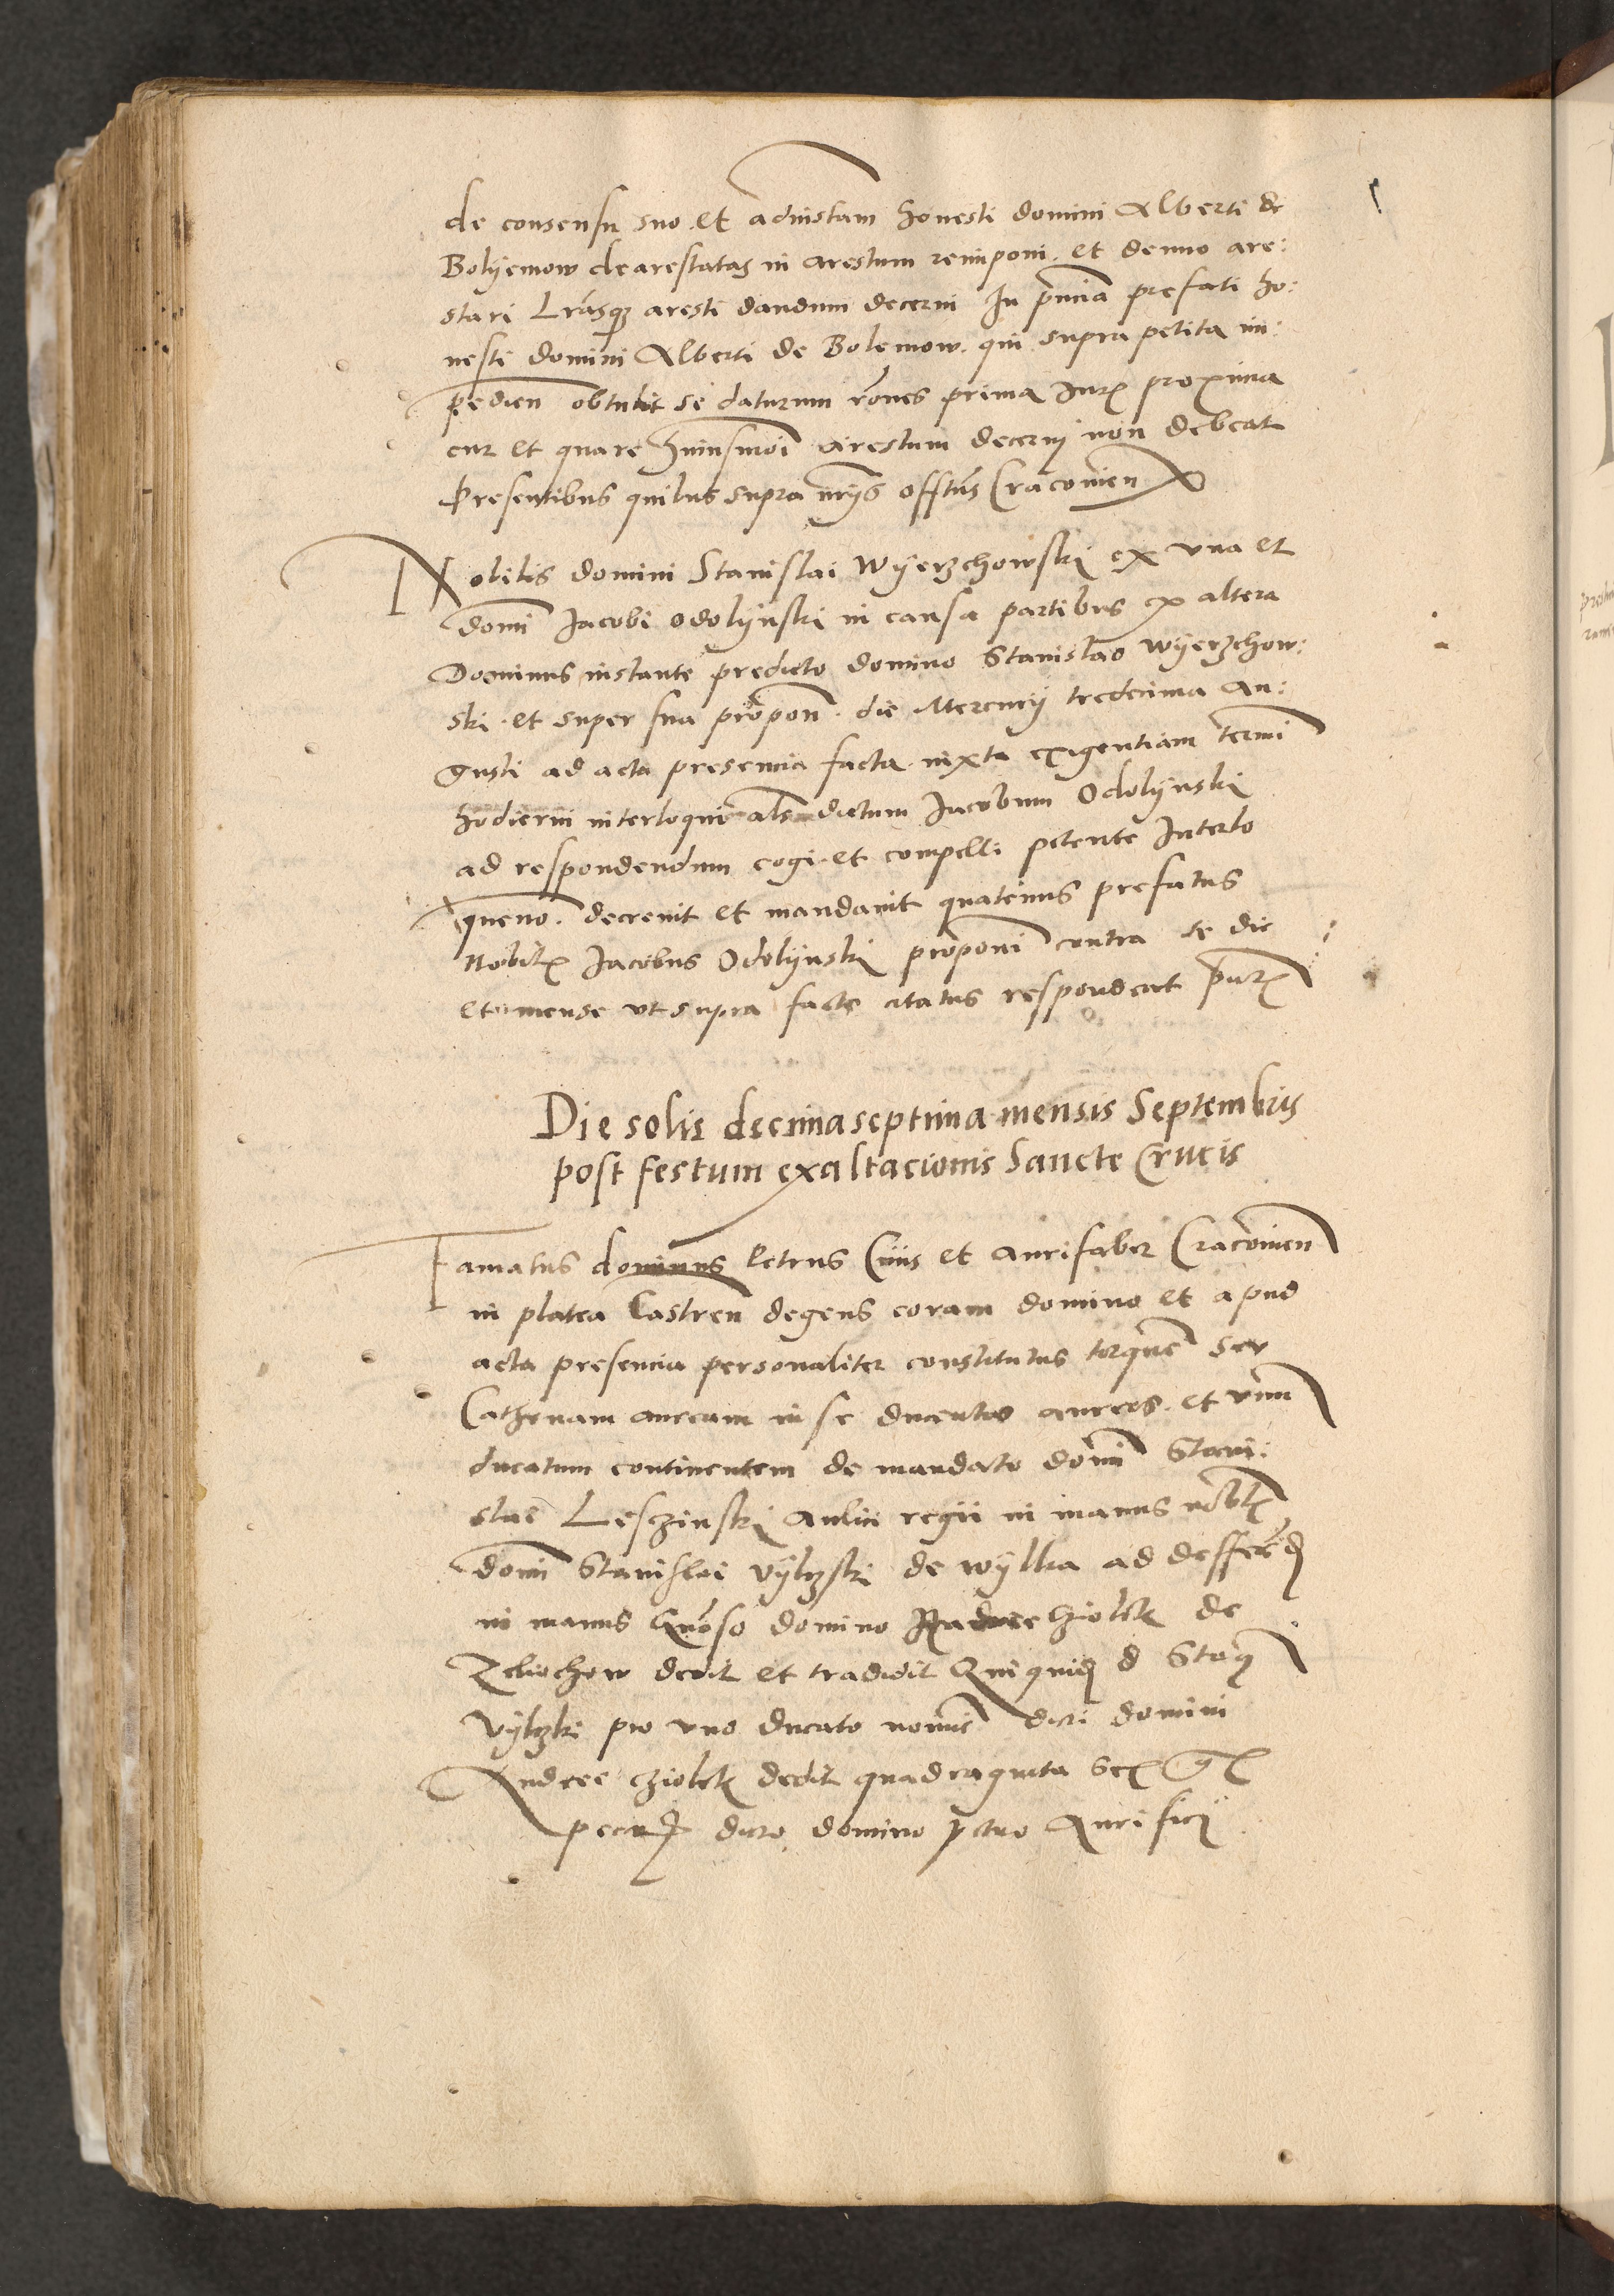 de consensu suo et adinstam honesti domini Alberti de
Bolyemow dearestatas in arestum reimponi et denuo are:
stari Lrasq; aresti dandum decerni In pncia prefati ho:
nesti domini Alberti de Bolemow qui supra petita im:
pedien obtulit se daturum rones prima Jur proxima
cur et quare huiusmoi arestum decerni non debeat
Presentibus quibus supra nrys offtus Cracouien
Nobilis domini Stanislai Wyerzchowski ex vna et
domi Jacobi Odolynski in causa partibus ex altera
Dominus instante predicto domino Stanislao Wyerzchow:
ski et super sua propon die Mercurij tredecima Au:
gusti ad acta presencia facta iuxta exigentiam termi
hodierni interloqui als dictum Jacobum Odolynski
ad respondendum cogi et compelli petente Interlo
queno decreuit et mandauit quatenus prefatus
Nobilis Jacobus Odolynski proponi contra se die
et mense vt supra facte citatus respondeat
Die solis decimaseptima mensis Septembris
post festum exaltacionis Sancte Crucis
Famatus dominus Petrus Ciuis et aurifaber Cracouien
in platea Castren degens coram domino et apud
acta presencia personaliter constitutus torquem seu
Cathenam auream in se ducentos aureos et vnum
ducatum continentem de mandato domi Stani:
slai Lesczinski aulici regii in manus
domi Stanislai Vylyzski de Wylka ad
in manus domino Andree Cziolek de
Zelechow dedit et tradidit Qui quid d Stas
Vylyzki pro vno ducato nomis dicti domini
Andree Cziolek dedit quadraginta
dicto domino petro Aurifici